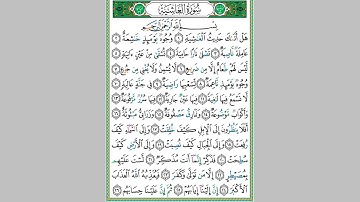 سُورَةُ الغَاشِيَةِ
بِسْمِ ٱللَّهِ ٱلرَّحْمَٰنِ ٱلرَّحِيمِ
هَلْ أَتَىٰكَ حَدِيثُ ٱلْغَٰشِيَةِ ١ وُجُوهٌ يَوْمَئِذٍ خَٰشِعَةٌ ٢
عَامِلَةٌ نَّاصِبَةٌ ٣ تَصْلَىٰ نَارًا حَامِيَةً ٤ تُسْقَىٰ مِنْ عَيْنٍ ءَانِيَةٍ ٥
لَّيْسَ لَهُمْ طَعَامٌ إِلَّا مِن ضَرِيعٍ ٦ لَّا يُسْمِنُ وَلَا يُغْنِى مِن جُوعٍ ٧
وُجُوهٌ يَوْمَئِذٍ نَّاعِمَةٌ ٨ لِّسَعْيِهَا رَاضِيَةٌ ٩ فِى جَنَّةٍ عَالِيَةٍ ١٠
لَّا تَسْمَعُ فِيهَا لَٰغِيَةً ١١ فِيهَا عَيْنٌ جَارِيَةٌ ١٢ فِيهَا سُرُرٌ مَّرْفُوعَةٌ ١٣
وَأَكْوَابٌ مَّوْضُوعَةٌ ١٤ وَنَمَارِقُ مَصْفُوفَةٌ ١٥ وَزَرَابِىُّ مَبْثُوثَةٌ ١٦
أَفَلَا يَنظُرُونَ إِلَى ٱلْإِبِلِ كَيْفَ خُلِقَتْ ١٧ وَإِلَى ٱلسَّمَآءِ كَيْفَ
رُفِعَتْ ١٨ وَإِلَى ٱلْجِبَالِ كَيْفَ نُصِبَتْ ١٩ وَإِلَى ٱلْأَرْضِ كَيْفَ
سُطِحَتْ ٢٠ فَذَكِّرْ إِنَّمَآ أَنتَ مُذَكِّرٌ ٢١ لَّسْتَ عَلَيْهِم
بِمُصَيْطِرٍ ٢٢ إِلَّا مَن تَوَلَّىٰ وَكَفَرَ ٢٣ فَيُعَذِّبُهُ ٱللَّهُ ٱلْعَذَابَ
ٱلْأَكْبَرَ ٢٤ إِنَّ إِلَيْنَآ إِيَابَهُمْ ٢٥ ثُمَّ إِنَّ عَلَيْنَا حِسَابَهُم ٢٦